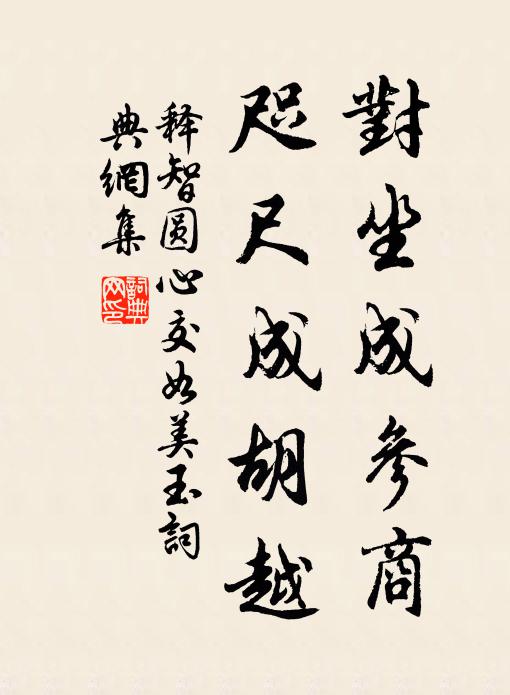 對坐成參商
咫尺成胡越
释智圓心交如美玉詞
典網集
詞典
网印